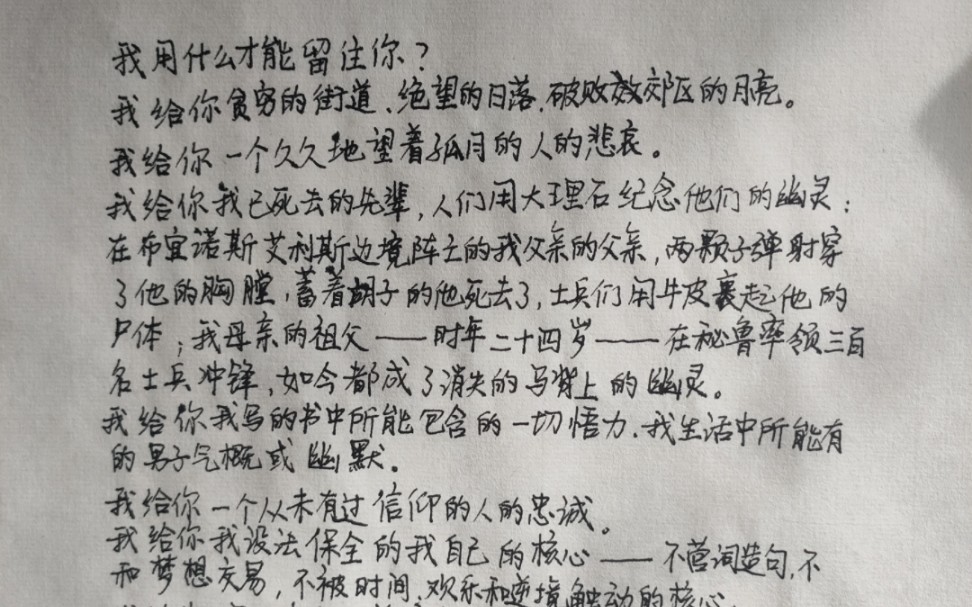 我用什么才能留住你？
我给你贫穷的街道、绝望的日落、破败郊区的月亮。
我给你一个久久地望着孤月的人的悲哀。
我给你我已死去的先辈，人们用大理石纪念他们的幽灵：
在布宜诺斯艾利斯边境阵亡的我父亲的父亲，两颗子弹射穿
了他的胸膛，蓄着胡子的他死去了，士兵们用牛皮裹起他的
尸体；我母亲的祖父——时年二十四岁——在秘鲁率领三百
名士兵冲锋，如今都成了消失的马背上的幽灵。
我给你我写的书中所能包含的一切悟力、我生活中所能有
的男子气概或幽默。
我给你一个从未有过信仰的人的忠诚。
我给你我设法保全的我自己的核心——不营词造句，不
和梦想交易，不被时间、欢乐和逆境触动的核心